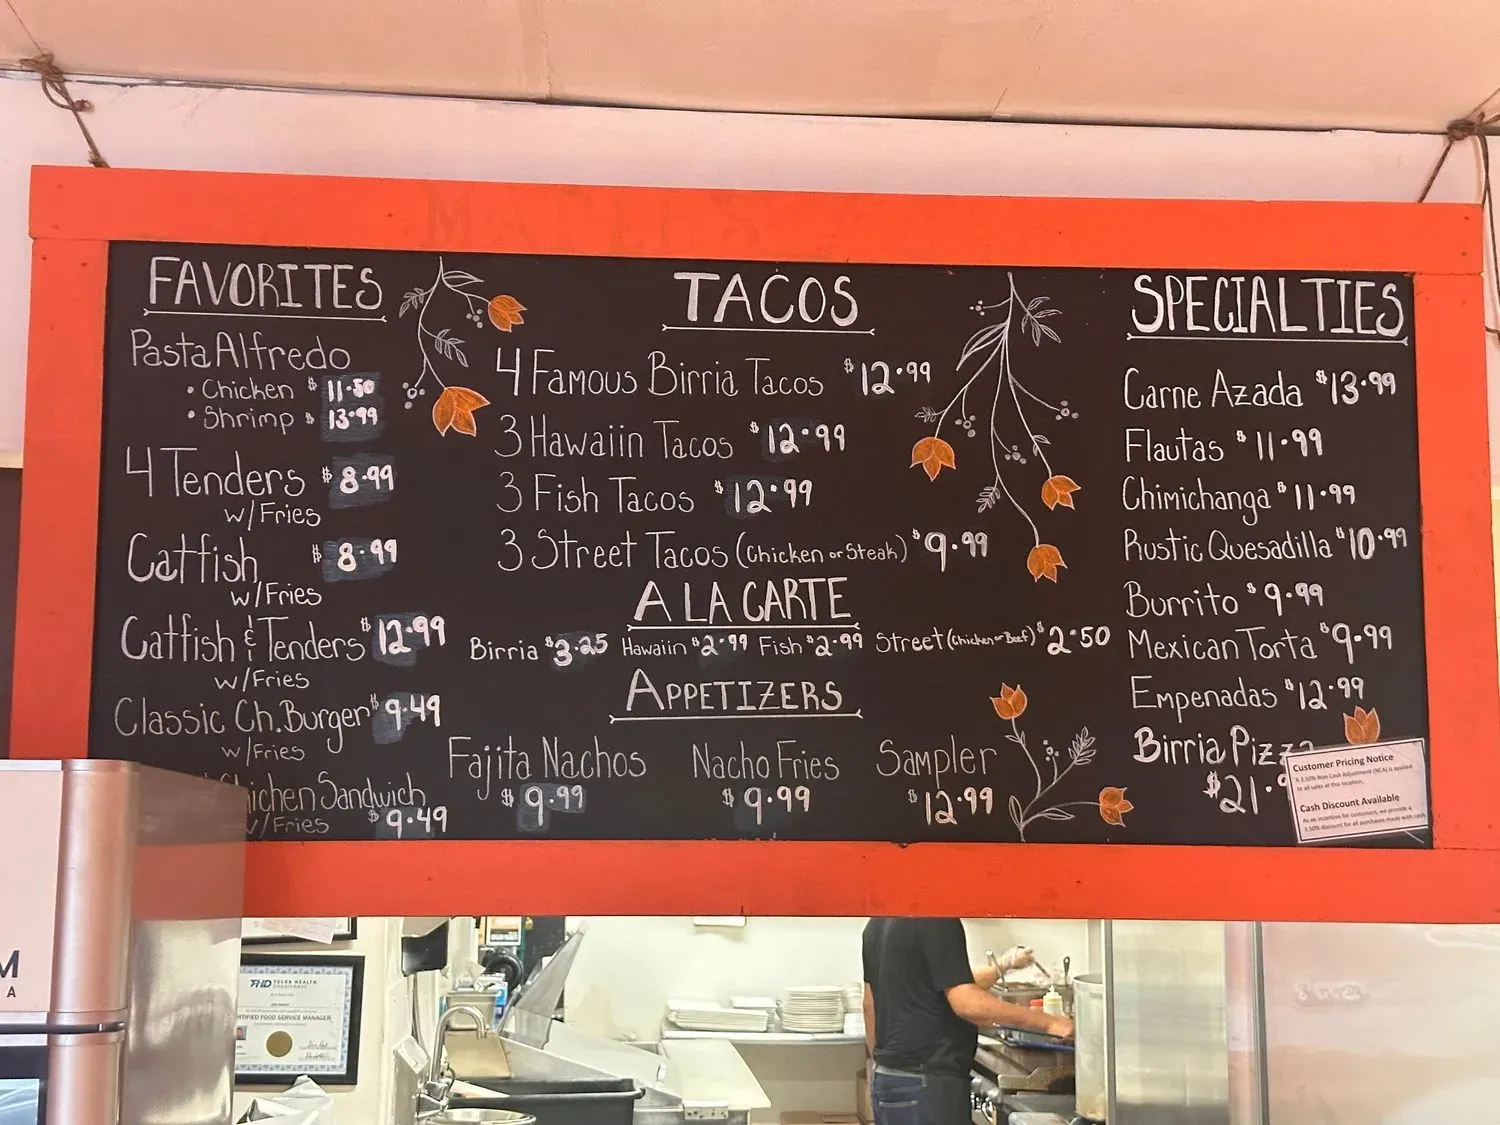 FAVORITES
Pasta Alfredo
• Chicken $ 11.50
• Shrimp $ 13.99
4 Tenders $ 8.99
w/Fries
Catfish $ 8.99
w/Fries
Catfish & Tenders $ 12.99
w/Fries
Classic Ch. Burger $ 9.49
w/Fries
Chicken Sandwich
w/Fries $ 9.49
TACOS
4 Famous Birria Tacos $12.99
3 Hawaiin Tacos $12.99
3 Fish Tacos $12.99
3 Street Tacos (Chicken or Steak) $9.99
A LA CARTE
Birria $3.25 Hawaiin $2.99 Fish $2.99 Street (Chicken or Beef) $2.50
APPETIZERS
Fajita Nachos
$ 9.99
Nacho Fries
$ 9.99
Sampler
$ 12.99
SPECIALTIES
Carne Azada $13.99
Flautas $11.99
Chimichanga $11.99
Rustic Quesadilla $10.99
Burrito $9.99
Mexican Torta $9.99
Empenadas $12.99
Birria Pizza
$21.9
Customer Pricing Notice
A 3.50% Non Cash Adjustment (NCA) is applied
to all sales at this location.
Cash Discount Available
As an incentive for customers, we provide a
3.50% discount for all purchases made with cash
M
A
THD TULSA HEALTH
Department
RTIFIED FOOD SERVICE MANAGER